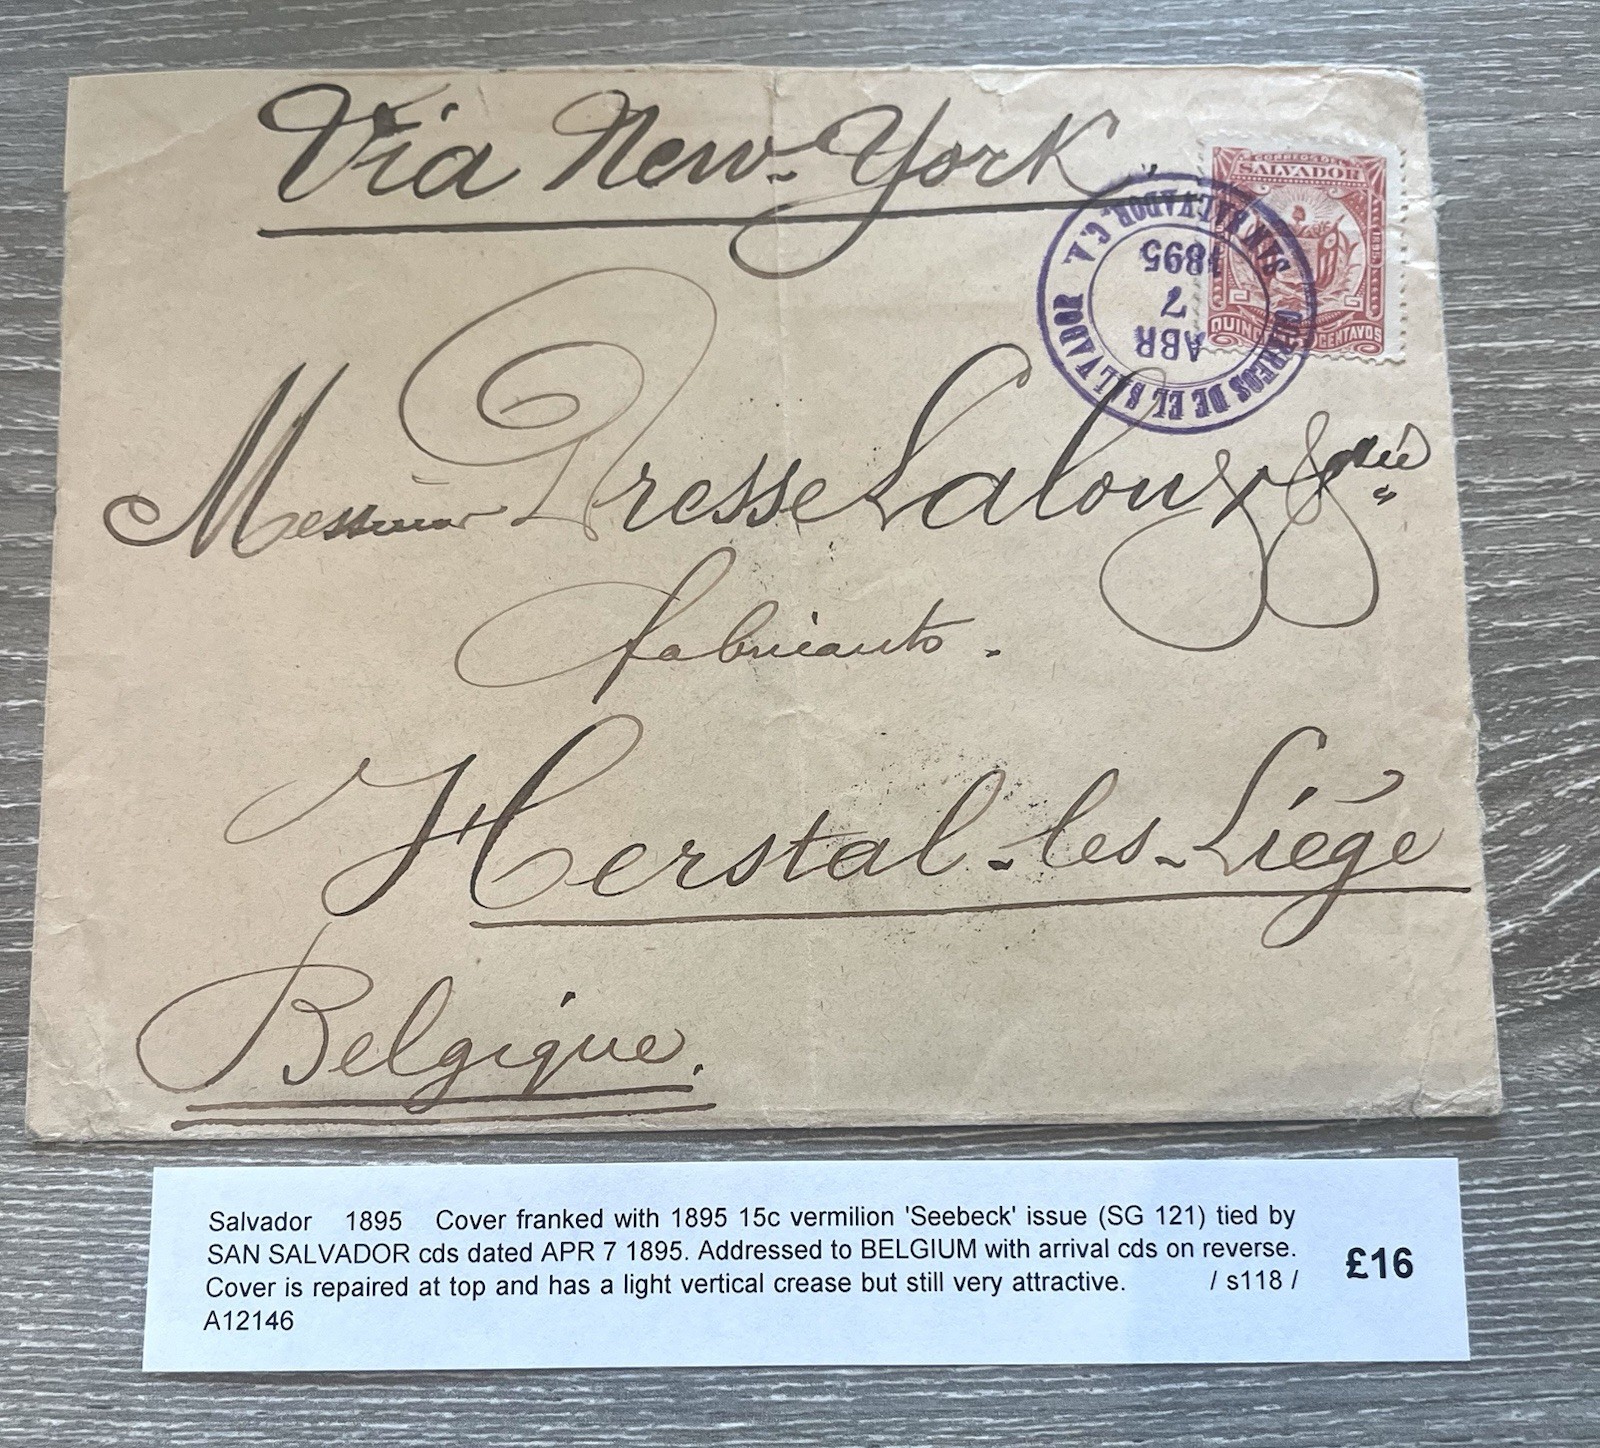 Via New-York
CORREOS DEL
SALVADOR
QUINCE CENTAVOS
SAN SALVADOR. C.A.
1895
7
ABR
CORREOS DE EL SALVADOR
Messieurs Dresse Laloux & Cnie
fabricants.
Herstal-les-Liége
Belgique.
Salvador 1895 Cover franked with 1895 15c vermilion 'Seebeck' issue (SG 121) tied by
SAN SALVADOR cds dated APR 7 1895. Addressed to BELGIUM with arrival cds on reverse.
Cover is repaired at top and has a light vertical crease but still very attractive. / s118 /
A12146
£16